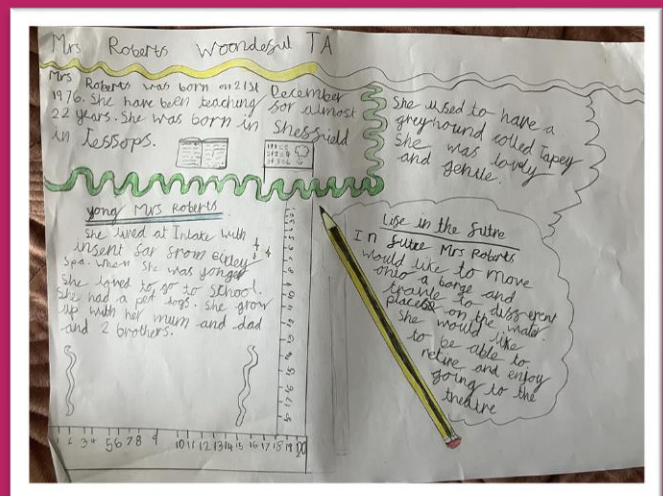 Mrs Roberts Woondeful TA
Mrs Roberts was born on 21st December
1976. She have been teaching for almost
22 years. She was born in Sheffield
in Jessops.
She used to have a
greyhound called Tapey
She was lovely
and gentle.
yong Mrs Roberts
She lived at Intake with
insent far from
Spa. When she was yonger
She loved to go to school.
She had a pet dogs. She grow
up with her mum and dad
and 2 brothers.
Life in the futre
In futre Mrs Roberts
would like to move
onto a barge and
travle to different
places on the water.
She would like
to be able to
retire and enjoy
going to the
theatre